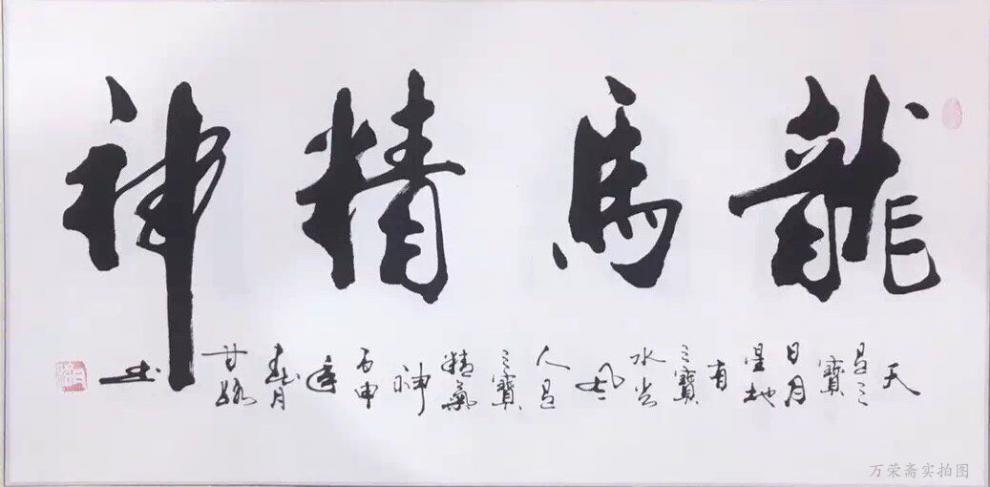 龍馬精神
天
有三
寶
日月
星地
有
三寶
水火
風
人有
三寶
精氣
神
丙申
年
春月
甘
书
万荣斋实拍图